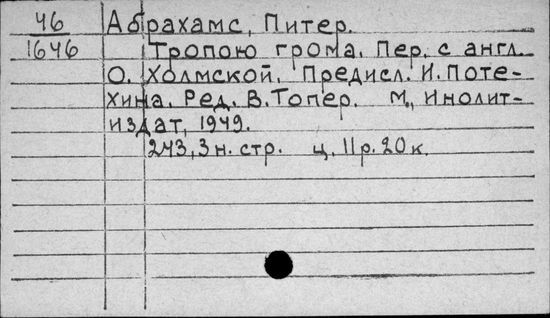 46 Абрахамс, Питер.
1646 Тропою грома. Пер. с англ.
О. Холмской. Предисл. И. Поте-
хина. Ред. В. Топер. М., Инолит-
издат, 1949.
243, 3 н. стр. ц. 11 р. 20 к.